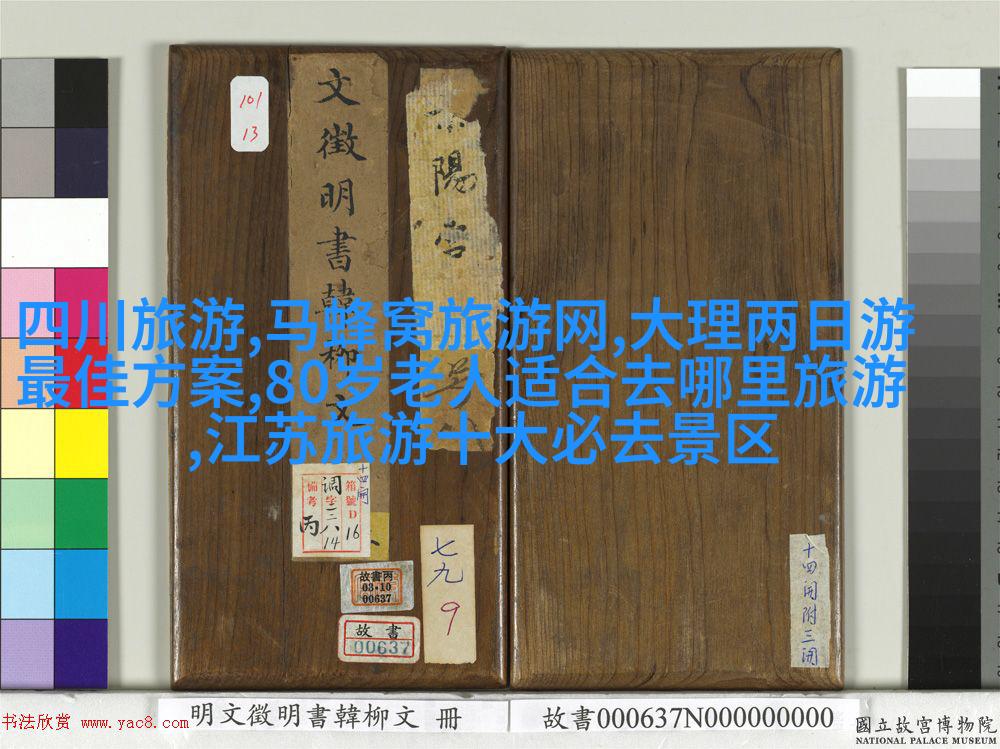 101
13
文徵明書韓柳文
陽宮
四川旅游,马蜂窝旅游网,大理两日游
最佳方案,80岁老人适合去哪里旅游
,江苏旅游十大必去景区
十四開
箱號D16
調字三八14
備考 丙
故書丙
03·10
00637
故書
00637
七九
9
十四開附三開
明文徵明書韓柳文 冊
故書000637N000000000
國立故宮博物院
NATIONAL PALACE MUSEUM
书法欣赏 www.yac8.com